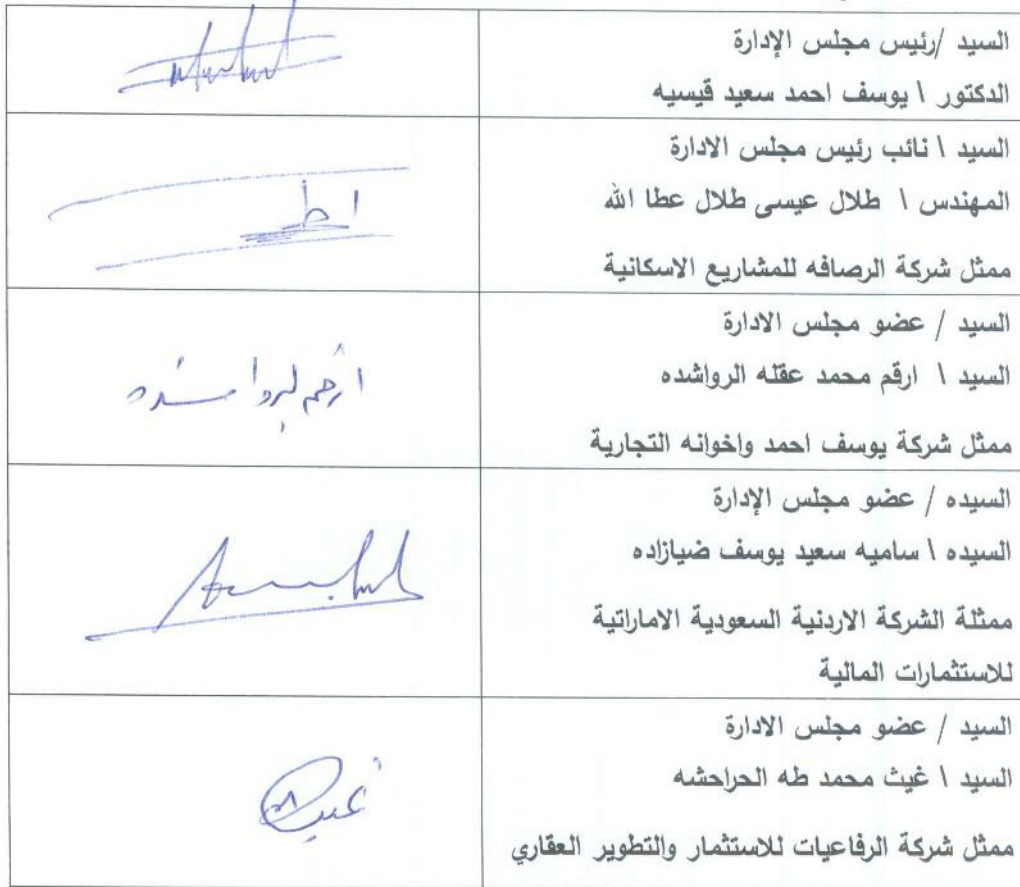 السيد /رئيس مجلس الإدارة
الدكتور \ يوسف احمد سعيد قيسيه
السيد \ نائب رئيس مجلس الادارة
المهندس \ طلال عيسى طلال عطا الله
ممثل شركة الرصافه للمشاريع الاسكانية
السيد / عضو مجلس الادارة
السيد \ ارقم محمد عقله الرواشده
ممثل شركة يوسف احمد واخوانه التجارية
ارقم الرواشده
السيده / عضو مجلس الإدارة
السيده \ ساميه سعيد يوسف ضيازاده
ممثلة الشركة الاردنية السعودية الاماراتية
للاستثمارات المالية
السيد / عضو مجلس الادارة
السيد \ غيث محمد طه الحراحشه
ممثل شركة الرفاعيات للاستثمار والتطوير العقاري
غيث